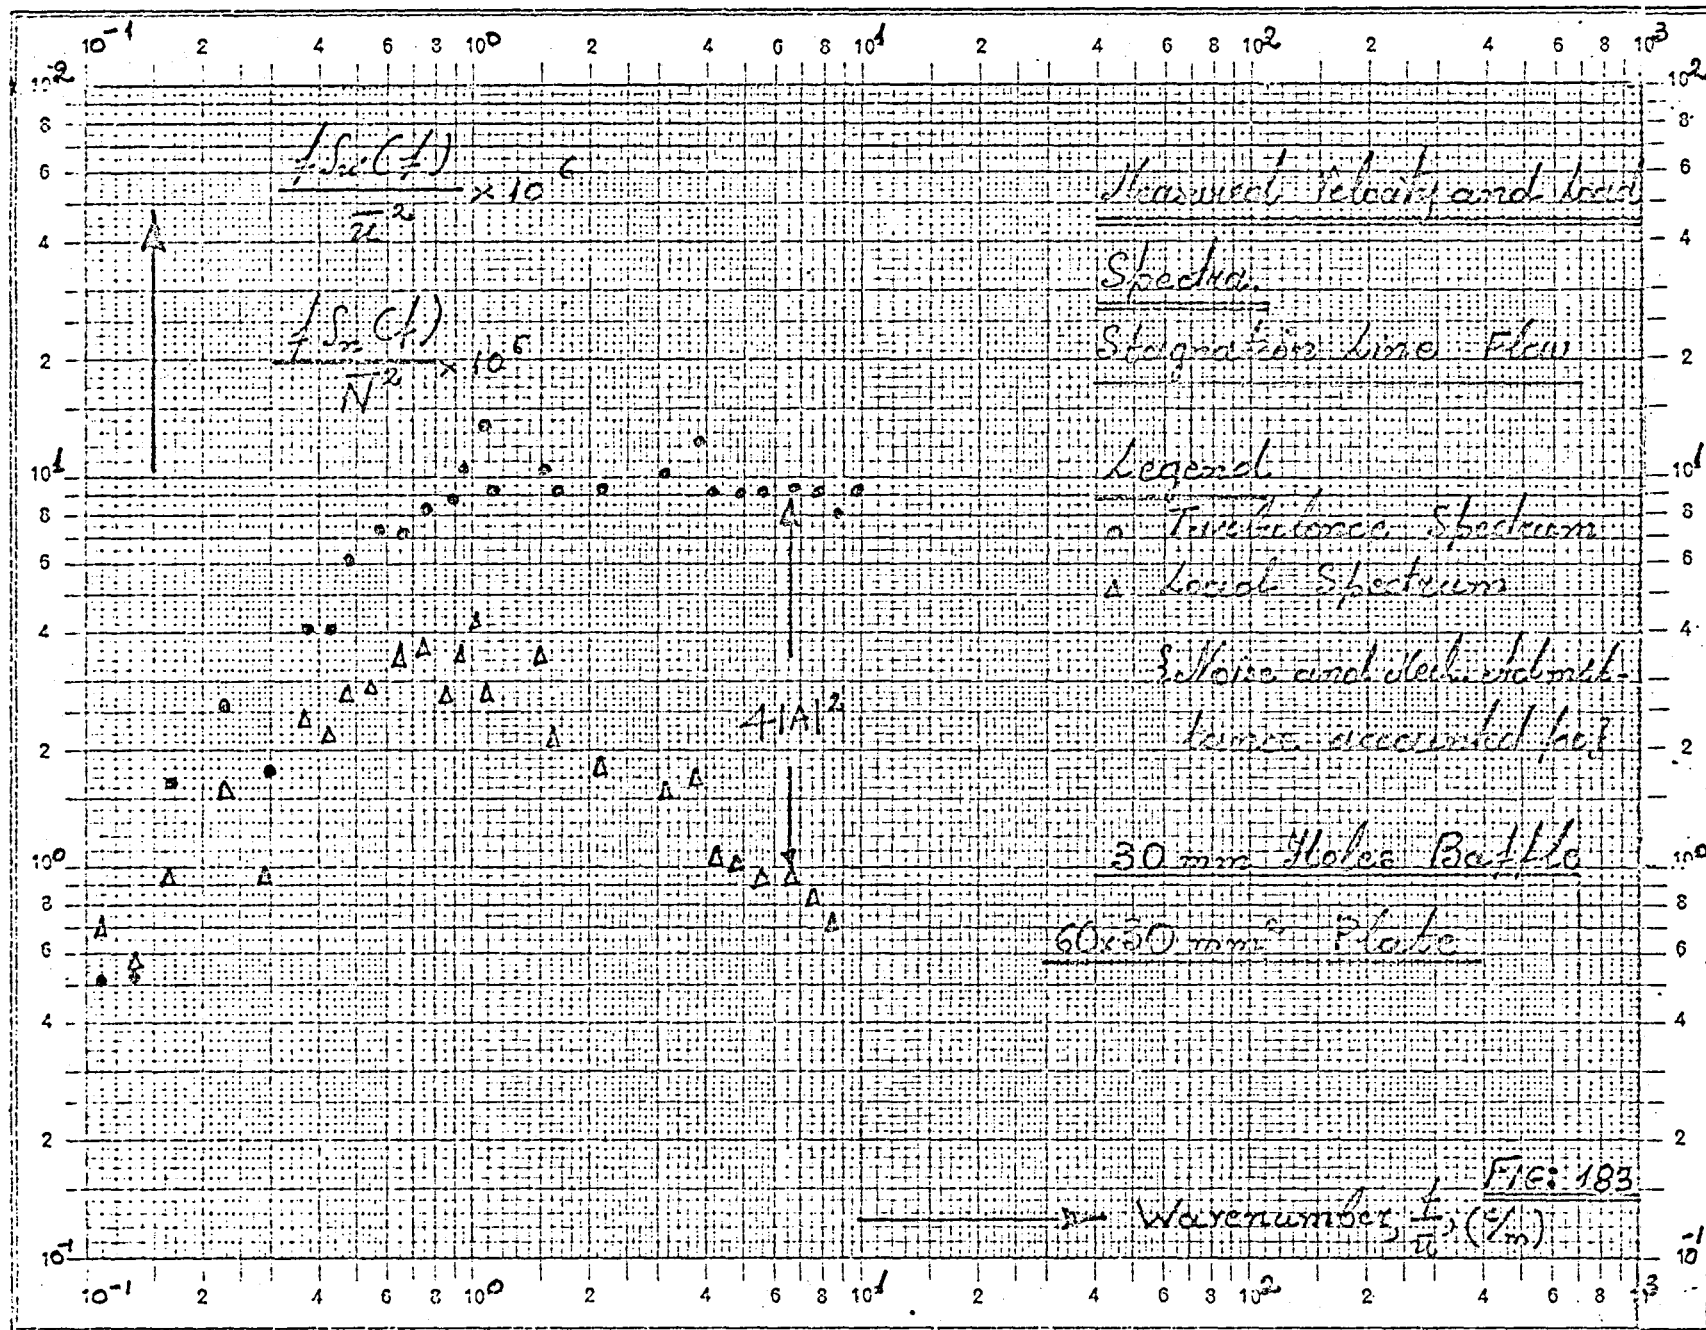 10⁻¹ 2 4 6 8 10⁰ 2 4 6 8 10¹ 4 6 8 10² 2 4 6 8 10³
10⁻² 8 6 4 2 10¹ 8 6 4 2 10⁰ 8 6 4 2 10⁻¹
f Su (f) / ū² × 10⁶
f Sn (f) / N̄² × 10⁶
Measured Velocity and Load
Spectra.
Stagnation Line Flow
Legend
o Turbulence Spectrum
Δ Load Spectrum
{Noise and Mech. Admit-
tance accounted for}
4|A|²
30 mm Holes Baffle
60x30 mm² Plate
FIG: 183
Wavenumber, f/ū, (c/m)
10² 8 6 4 2 10¹ 8 6 4 2 10⁰ 8 6 4 2 10⁻¹
10⁻¹ 2 4 6 8 10⁰ 2 4 6 8 10¹ 4 6 8 10² 2 4 6 8 10³